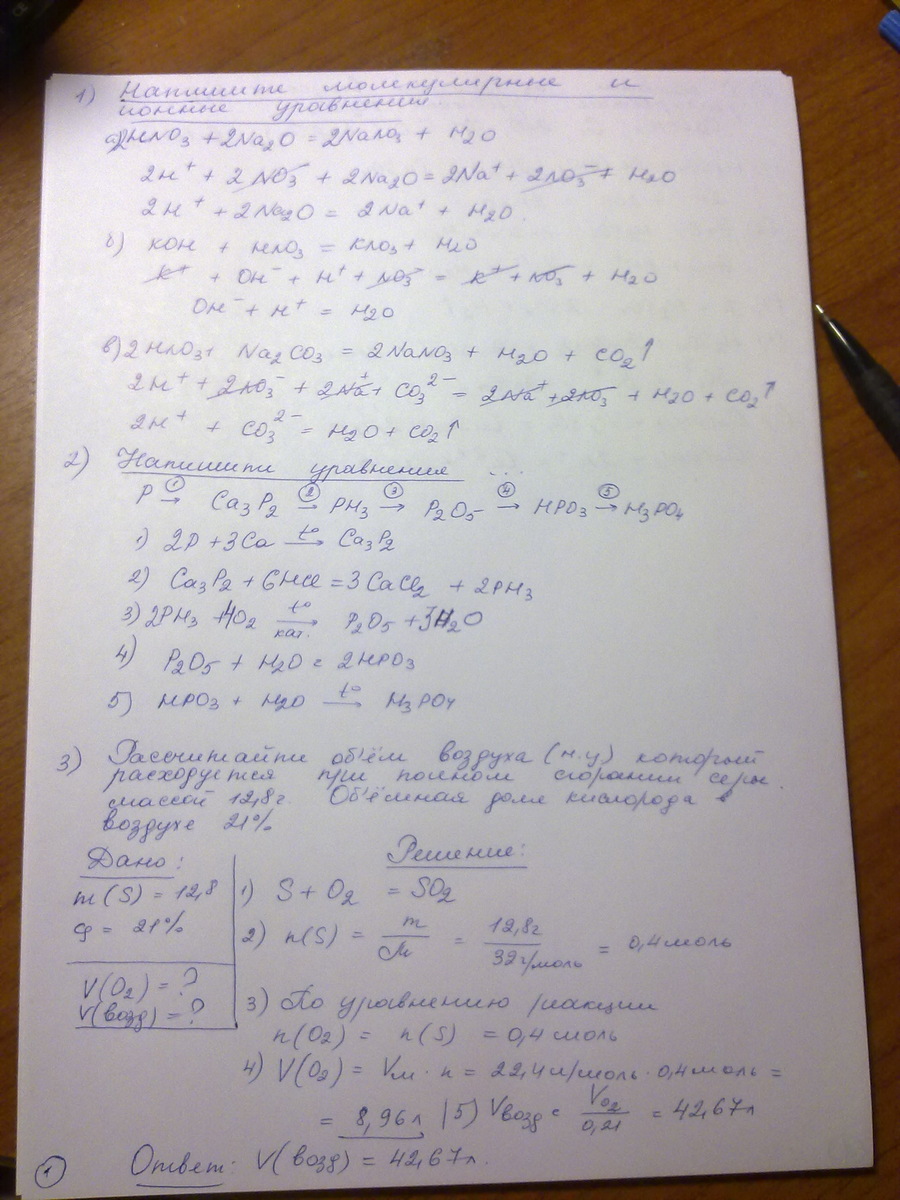 1) Напишите молекулярные и
ионные уравнения.
а) 2HNO₃ + 2Na₂O = 2NaNO₃ + H₂O
2H⁺ + 2NO₃⁻ + 2Na₂O = 2Na⁺ + 2NO₃⁻ + H₂O
2H⁺ + 2Na₂O = 2Na⁺ + H₂O.
б) KOH + HNO₃ = KNO₃ + H₂O
K⁺ + OH⁻ + H⁺ + NO₃⁻ = K⁺ + NO₃⁻ + H₂O
OH⁻ + H⁺ = H₂O
в) 2HNO₃ + Na₂CO₃ = 2NaNO₃ + H₂O + CO₂↑
2H⁺ + 2NO₃⁻ + 2Na⁺ + CO₃²⁻ = 2Na⁺ + 2NO₃⁻ + H₂O + CO₂↑
2H⁺ + CO₃²⁻ = H₂O + CO₂↑
2) Напишити уравнения ...
P →① Ca₃P₂ →② PH₃ →③ P₂O₅ →④ HPO₃ →⑤ H₃PO₄
1) 2P + 3Ca t°→ Ca₃P₂
2) Ca₃P₂ + 6HCl = 3CaCl₂ + 2PH₃
3) 2PH₃ + 4O₂ t°→ кат. P₂O₅ + 3H₂O
4) P₂O₅ + H₂O = 2HPO₃
5) HPO₃ + H₂O t°→ H₃PO₄
3) Рассчитайти объём воздуха (н.у) который
расходуется при полном сгорании серы
массой 12,8г. Объёмная доля кислорода в
воздухе 21%
Дано:
m(S) = 12,8
φ = 21%
V(O₂) = ?
V(возд) = ?
Решение:
1) S + O₂ = SO₂
2) n(S) = m/M = 12,8г/32г/моль = 0,4 моль
3) По уравнению реакции
n(O₂) = n(S) = 0,4 моль
4) V(O₂) = Vм · n = 22,4л/моль · 0,4 моль =
= 8,96л | 5) Vвозд = VO₂/0,21 = 42,67л
Ответ: V(возд) = 42,67л.
①